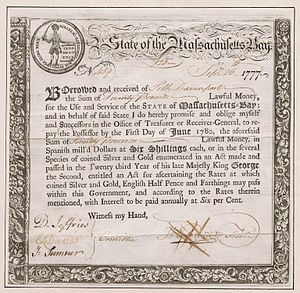 State of the Massachusetts Bay.
1777.
Borrowed and received of
the Sum of Lawful Money,
for the Use and Service of the STATE of Massachusetts-Bay;
and in behalf of said State I do hereby promise and oblige myself
and Successors in the Office of Treasurer or Receiver-General, to re-
pay the Possessor by the First Day of June 1780, the aforesaid
Sum of Lawful Money, in
Spanish mill'd Dollars at Six Shillings each, or in the several
Species of coined Silver and Gold enumerated in an Act made and
passed in the Twenty Third Year of his late Majesty King George
the Second, entitled an Act for ascertaining the Rates at which
coined Silver and Gold, English Half Pence and Farthings may pass
within this Government, and according to the Rates therein
mentioned, with Interest to be paid annually at Six per Cent.
Witness my Hand,
D. Jeffries
Committee